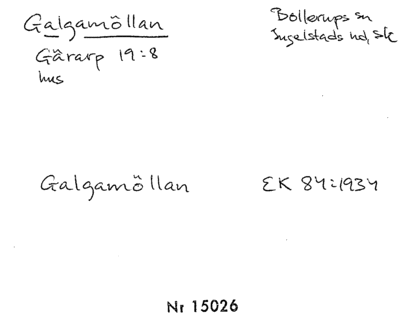 Galgamöllan
Gårarp 19:8
hus
Bollerups sn
Ingelstads hd, Sk
Galgamöllan
EK 84:1934
Nr 15026